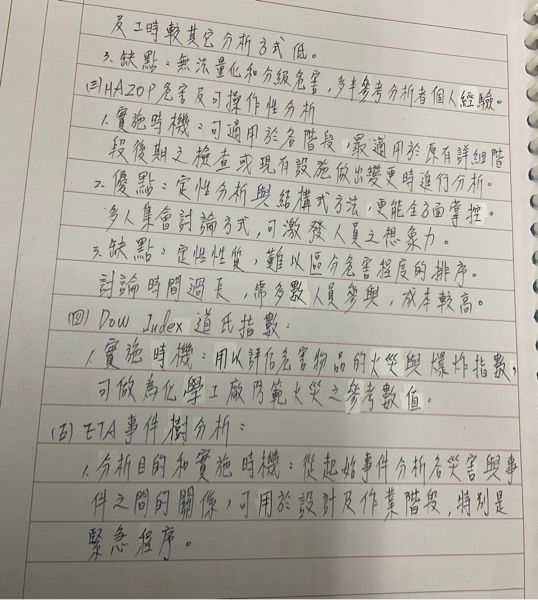 及工時較其它分析方式低。
3.缺點：無法量化和分級危害，多半參考分析者個人經驗。
(三)HAZOP危害及可操作性分析
1.實施時機：可適用於各階段，最適用於原有詳細階
段後期之檢查或現有設施做出變更時進行分析。
2.優點：定性分析與結構式方法，更能全方面掌控。
多人集會討論方式，可激發人員之想象力。
3.缺點：定性性質，難以區分危害程度的排序。
討論時間過長，需多數人員參與，成本較高。
(四)Dow Index 道氏指數：
1.實施時機：用以評估危害物品的火災與爆炸指數，
可做為化學工廠防範火災之參考數值。
(五)ETA事件樹分析：
1.分析目的和實施時機：從起始事件分析各災害與事
件之間的關係，可用於設計及作業階段，特別是
緊急程序。